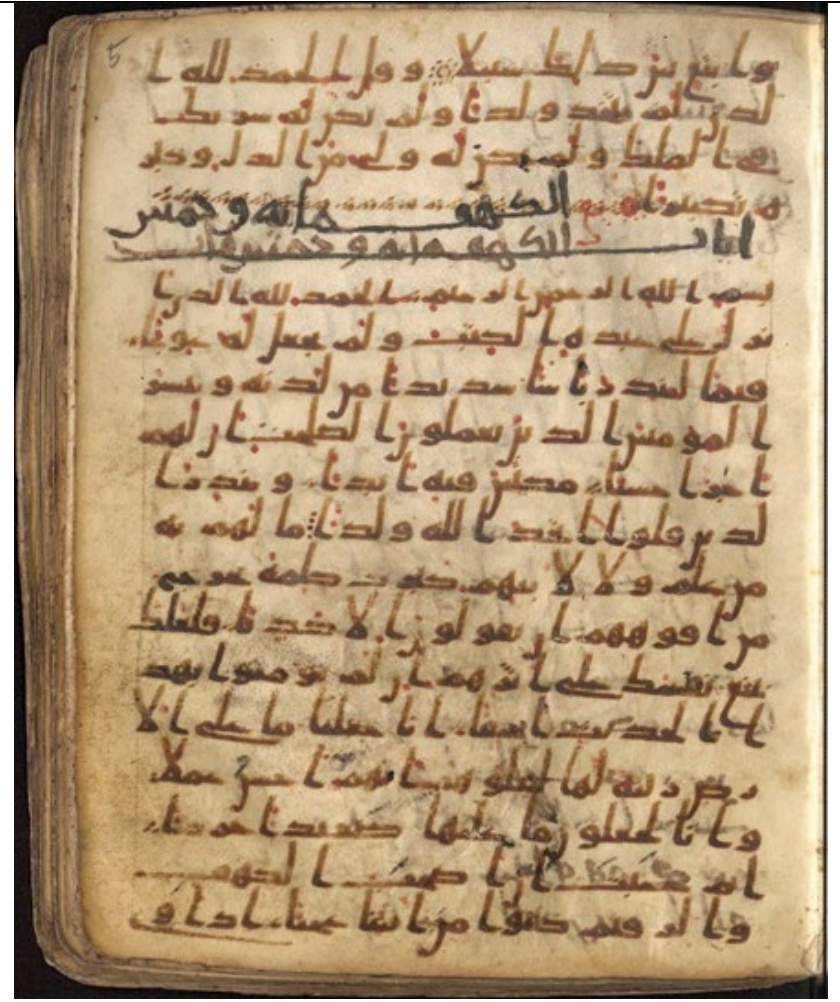 5
وابتغ بين ذلك سبيلا وقل الحمد لله ا
لذي لم يتخذ ولدا ولم يكن له شريك
في الملك ولم يكن له ولي من الذل وكبر
ه تكبيرا الكهف مائه وخمس
ايات الكهف مائه وخمس ايات
بسم الله الرحمن الرحيم الحمد لله الذي ا
نزل على عبده الكتب ولم يجعل له عوجا
قيما لينذر باسا شديدا من لدنه ويبشر
المومنين الذين يعملون الصلحت ان لهم
اجرا حسنا مكثين فيه ابدا وينذر ا
لذين قالوا اتخذ الله ولدا ما لهم به
من علم ولا لابائهم كبرت كلمة تخرج
من افوههم ان يقولون الا كذبا فلعلك
بخع نفسك على اثرهم ان لم يومنوا بهذ
ا الحديث اسفا انا جعلنا ما على الا
رض زينة لها لنبلوهم ايهم احسن عملا
وانا لجعلون ما عليها صعيدا جرزا
ام حسبت ان اصحب الكهف
والرقيم كانوا من ايتنا عجبا اذ او